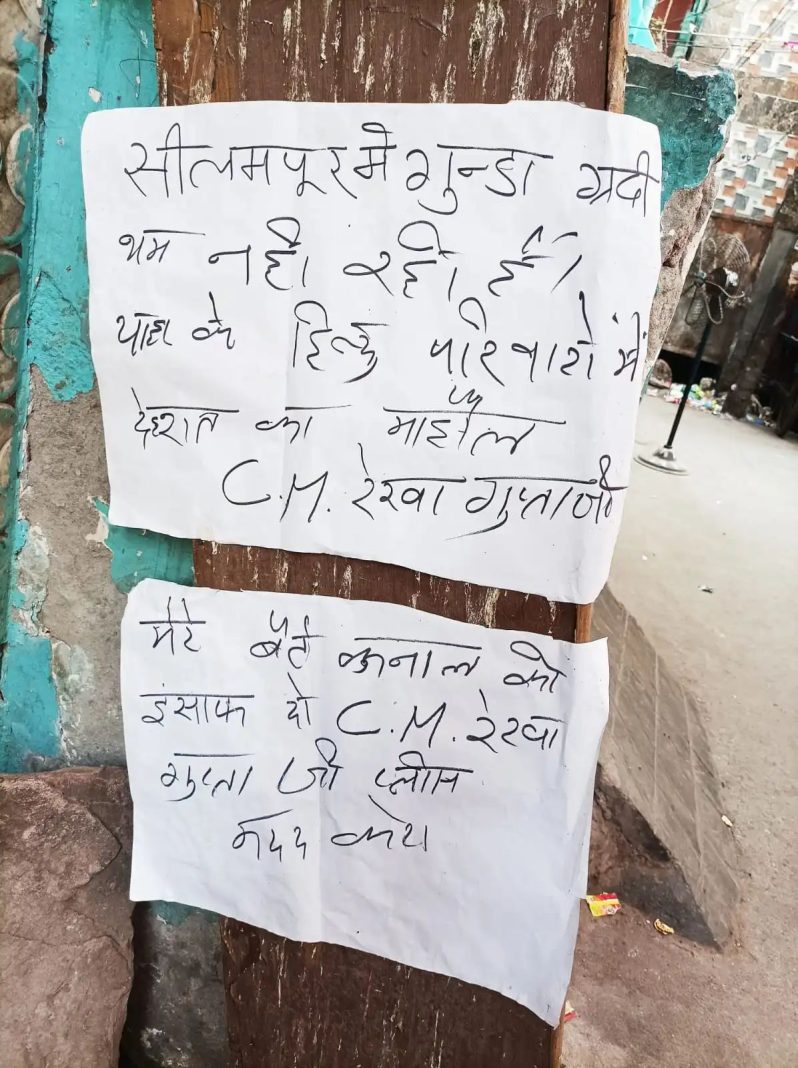 सीलमपूर मे गुन्डा ग्रदी
थम नही रही है।
याहा के हिन्दु परिवारो में
देहशत का माहौल
C.M. रेखा गुप्ता जी
मेरे बेटे कुनाल को
इंसाफ दो C.M. रेखा
गुप्ता जी प्लीस
मदद करो